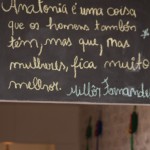 Anatonia é uma coisa
que os homens também
têm, mas que, nas
mulheres, fica muito
melhor. Millôr Fernandes